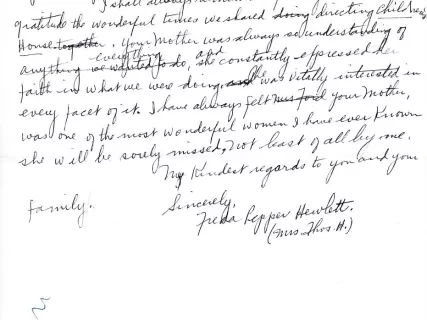 I shall always
gratitude the wonderful times we shared doing directing Children's
House together. Your Mother was always so understanding of
everything and
anything we wanted to do, she constantly expressed her
faith in what we were doing, and she was vitally interested in
every facet of it. I have always felt your Mother,
was one of the most wonderful women I have ever known
she will be sorely missed, not least of all by me.
My Kindest regards to you and your
Family.
Sincerely,
Freda Pepper Hewlett.
(Mrs. Thos. H.)